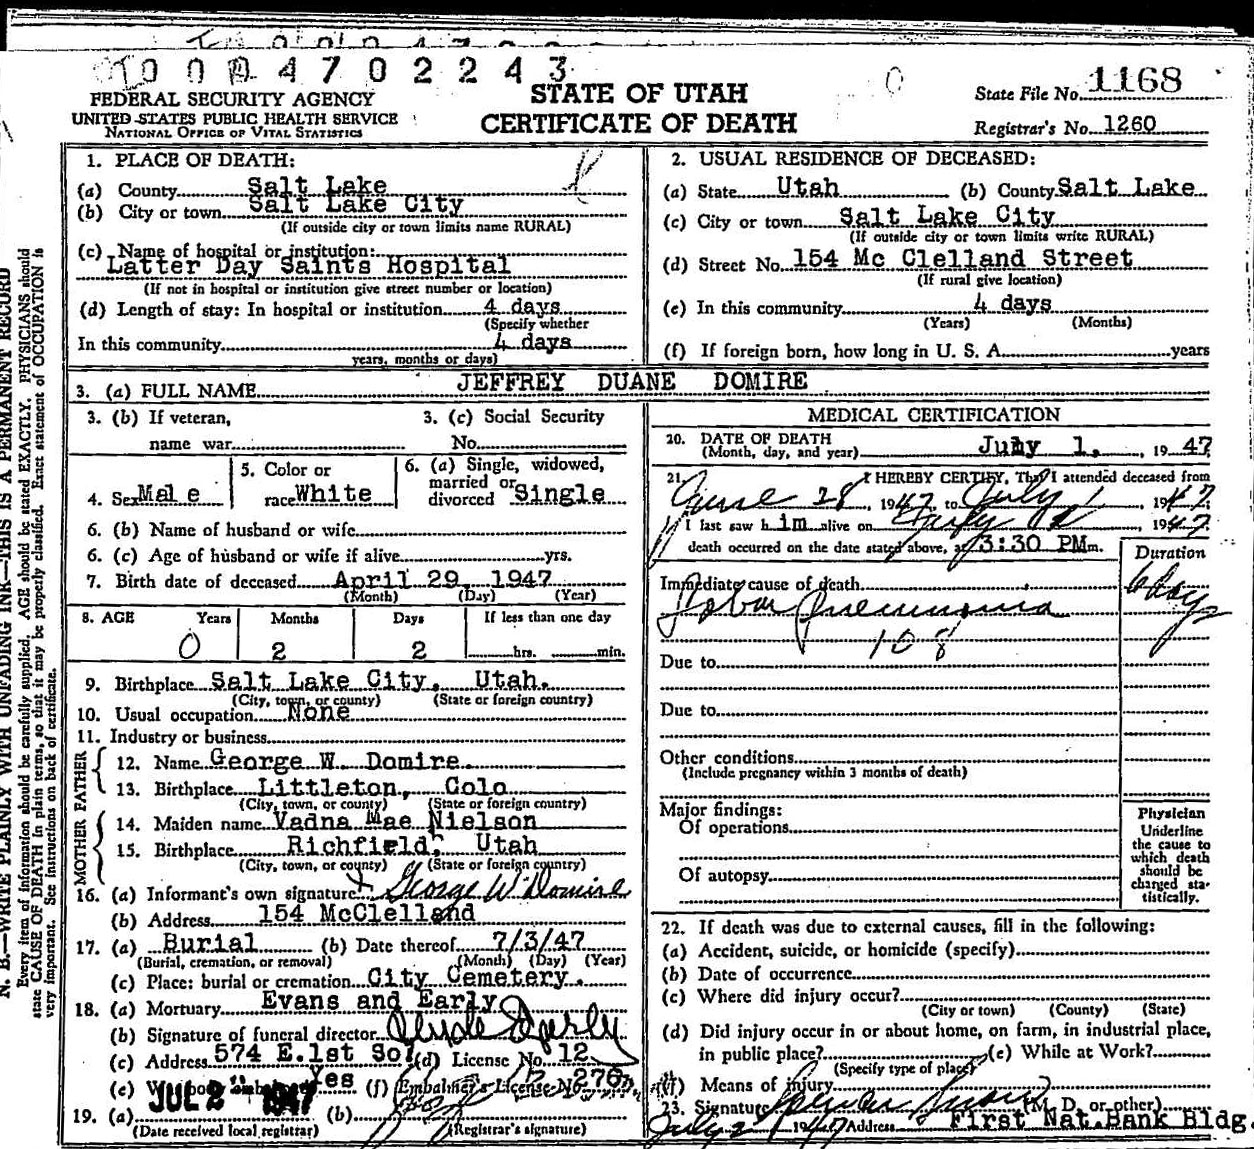 0004702243
FEDERAL SECURITY AGENCY
UNITED STATES PUBLIC HEALTH SERVICE
NATIONAL OFFICE OF VITAL STATISTICS
STATE OF UTAH
CERTIFICATE OF DEATH
State File No. 1168
Registrar's No. 1260
N. B.—WRITE PLAINLY WITH UNFADING INK—THIS IS A PERMANENT RECORD
Every item of information should be carefully supplied. AGE should be stated EXACTLY. PHYSICIANS should
state CAUSE OF DEATH in plain terms, so that it may be properly classified. Exact statement of OCCUPATION is
very important. See instructions on back of certificate.
1. PLACE OF DEATH:
(a) County Salt Lake
(b) City or town Salt Lake City
(If outside city or town limits name RURAL)
(c) Name of hospital or institution:
Latter Day Saints Hospital
(If not in hospital or institution give street number or location)
(d) Length of stay: In hospital or institution 4 days
(Specify whether
In this community 4 days
years, months or days)
2. USUAL RESIDENCE OF DECEASED:
(a) State Utah (b) County Salt Lake
(c) City or town Salt Lake City
(If outside city or town limits write RURAL)
(d) Street No. 154 Mc Clelland Street
(If rural give location)
(e) In this community 4 days
(Years) (Months)
(f) If foreign born, how long in U. S. A. years
3. (a) FULL NAME JEFFREY DUANE DOMIRE
3. (b) If veteran, 3. (c) Social Security
name war No.
4. Sex Male 5. Color or race White 6. (a) Single, widowed, married or divorced Single
6. (b) Name of husband or wife
6. (c) Age of husband or wife if alive yrs.
7. Birth date of deceased April 29, 1947
(Month) (Day) (Year)
8. AGE Years Months Days If less than one day
0 2 2 hrs. min.
9. Birthplace Salt Lake City, Utah.
(City, town, or county) (State or foreign country)
10. Usual occupation None
11. Industry or business
FATHER
12. Name George W. Domire
13. Birthplace Littleton, Colo
(City, town, or county) (State or foreign country)
MOTHER
14. Maiden name Vadna Mae Nielson
15. Birthplace Richfield, Utah
(City, town, or county) (State or foreign country)
16. (a) Informant's own signature George W Domire
(b) Address 154 McClelland
17. (a) Burial (b) Date thereof 7/3/47
(Burial, cremation, or removal) (Month) (Day) (Year)
(c) Place: burial or cremation City Cemetery.
18. (a) Mortuary Evans and Early
(b) Signature of funeral director Clyde Early
(c) Address 574 E.1st So. (d) License No. 12
(e) Was body embalmed? Yes (f) Embalmer's License No. 276
19. (a) JUL 2 1947 (b)
(Date received local registrar) (Registrar's signature)
MEDICAL CERTIFICATION
20. DATE OF DEATH
(Month, day, and year) July 1, 1947
21. I HEREBY CERTIFY, That I attended deceased from
June 28, 1947 to July 1 1947
I last saw him alive on July 1st, 1947
death occurred on the date stated above, at 3:30 PM m.
Duration
Immediate cause of death 6 days
Lobar Pneumonia
108
Due to
Due to
Other conditions
(Include pregnancy within 3 months of death)
Major findings:
Of operations
Of autopsy
Physician
Underline
the cause to
which death
should be
charged sta-
tistically.
22. If death was due to external causes, fill in the following:
(a) Accident, suicide, or homicide (specify)
(b) Date of occurrence
(c) Where did injury occur?
(City or town) (County) (State)
(d) Did injury occur in or about home, on farm, in industrial place,
in public place? (e) While at Work?
(Specify type of place)
(f) Means of injury
23. Signature Spencer (M. D. or other)
July 2 1947 Address First Nat.Bank Bldg.